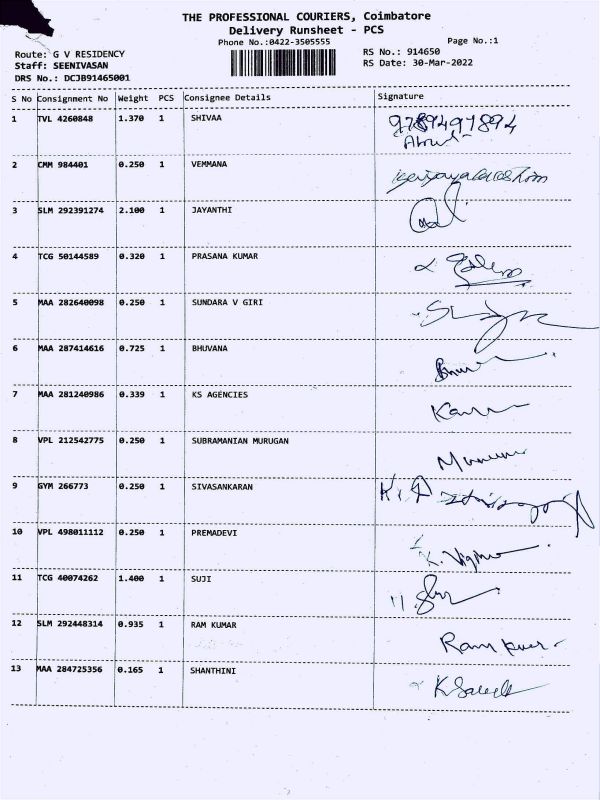 THE PROFESSIONAL COURIERS, Coimbatore
Delivery Runsheet - PCS
Phone No.:0422-3505555
Page No.:1
Route: G V RESIDENCY
RS No.: 914650
Staff: SEENIVASAN
RS Date: 30-Mar-2022
DRS No.: DCJB91465001
S No Consignment No Weight PCS Consignee Details Signature
1 TVL 4260848 1.370 1 SHIVAA
2 CMM 984401 0.250 1 VEMMANA
3 SLM 292391274 2.100 1 JAYANTHI
4 TCG 50144589 0.320 1 PRASANA KUMAR
5 MAA 282640098 0.250 1 SUNDARA V GIRI
6 MAA 287414616 0.725 1 BHUVANA
7 MAA 281240986 0.339 1 KS AGENCIES
8 VPL 212542775 0.250 1 SUBRAMANIAN MURUGAN
9 GYM 266773 0.250 1 SIVASANKARAN
10 VPL 498011112 0.250 1 PREMADEVI
11 TCG 40074262 1.400 1 SUJI
12 SLM 292448314 0.935 1 RAM KUMAR
13 MAA 284725356 0.165 1 SHANTHINI